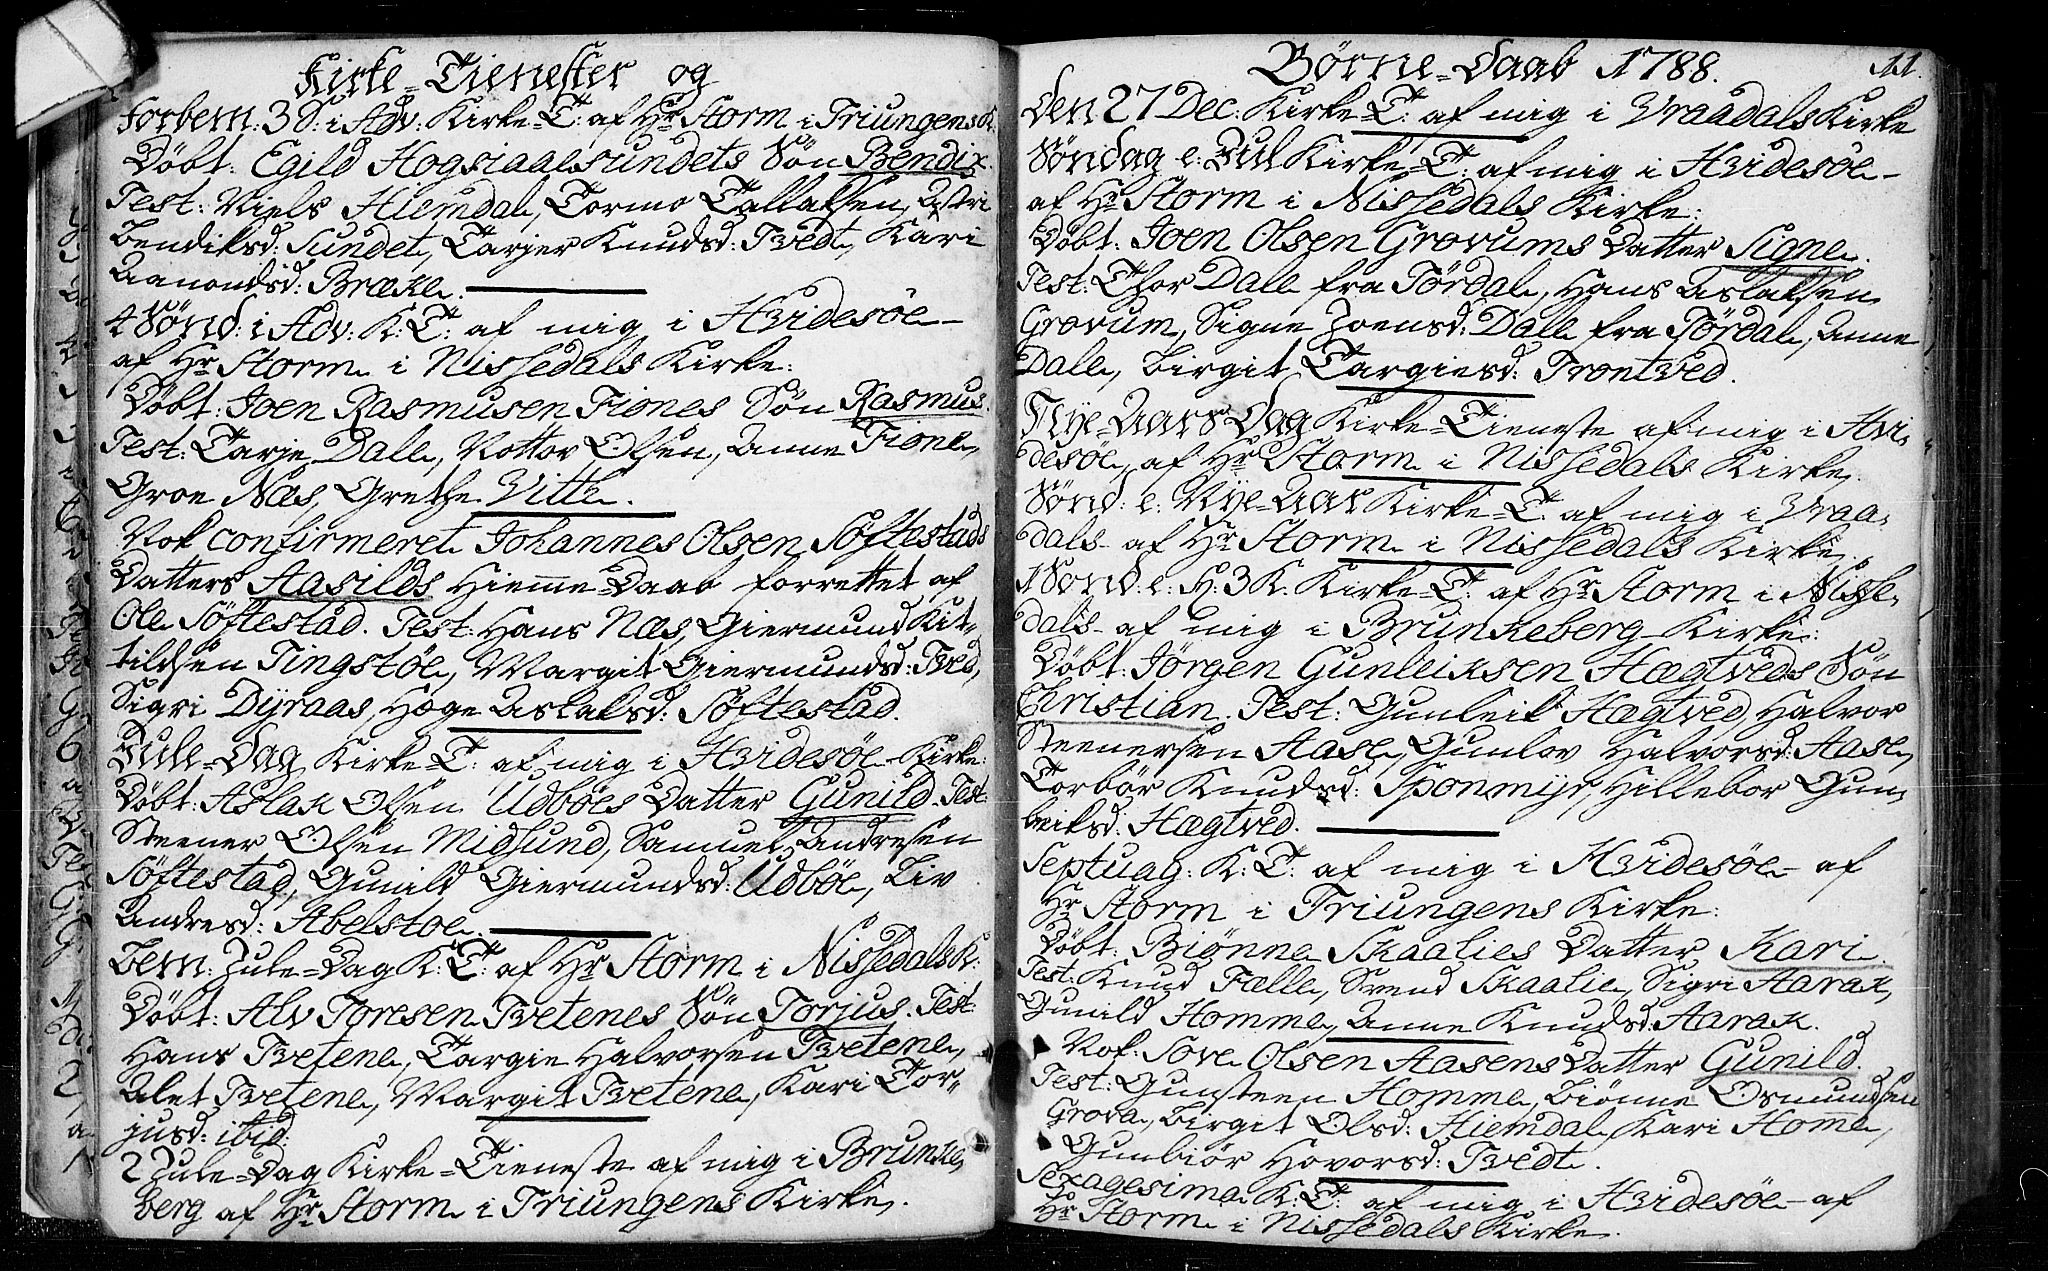 Kirke-Tienester og
Forbem: 3 S: i Adv: Kirke-T: af Hr Storm i Triungens K:
Döbt: Egild Hogsiaasundets Søn Bendix.
Test: Niels Hiemdal, Tormo Tallaksen, Astri
Bendiksd: Sundet, Tarjer Knudsd: Tvedt, Kari
Aamondsd: Bræke.
4 Sönd: i Adv: K: T: af mig i Hvidesöe-
af Hr Storm i Nissedals Kirke:
Döbt: Joen Rasmusen Fiones Søn Rasmus.
Test: Tarje Dale, Nottov Olsen, Anne Fione,
Groe Næs, Grethe Vitth.
Nok confirmeret Johannes Olsen Söftestads
Datters Aasilds Hieme-Daab forrettet af
Ole Söftestad. Test: Hans Næs, Giermund Kit-
tildsen Tingstöe, Margit Giermundsd: Tved,
Sigri Dyraas, Hæge Aslaksd: Söftestad.
Jule-Dag Kirke-T: af mig i Hvidesöe-Kirke:
Döbt: Aslak Olsen Udböes Datter Gunild. Test:
Steener Olsen Midsund, Samuel Andresen
Söftestad, Gunild Giermundsd: Udböe, Liv
Andresd: Abelstoe.
Bem: Jule-Dag K: T: af Hr Storm i Nissedals K:
Döbt: Alv Toresen Tvetenes Søn Torjus. Test:
Hans Tvetene, Targie Halvorsen Tvetene,
Alet Tvetene, Margit Tvetene, Kari Tor-
jusd: ibid:
2 Jule-Dag Kirke-Tieneste af mig i Brunke-
berg af Hr Storm i Triungens Kirke.
Börne-Daab 1788. 11.
Den 27 Dec: Kirke-T: af mig i Vraadals Kirke
Søndag e: Jul Kirke-T: af mig i Hvidesöe-
af Hr Storm i Nissedals Kirke:
Döbt: Joen Olsen Grovums Datter Signe.
Test: Thor Dale fra Tördal, Hans Aslaksen
Grovum, Signe Joensd: Dale fra Tördal, Anne
Dale, Birgit Targiesd: Trontved.
Nye-Aars Dag Kirke-Tieneste af mig i Hvi-
desöe, af Hr Storm i Nissedals Kirke.
Sönd: e: Nye-Aar Kirke-T: af mig i Vraa-
dals- af Hr Storm i Nissedals Kirke.
1 Sönd: e: H: 3 K: Kirke-T: af Hr Storm i Nisse-
dals- af mig i Brunkeberg-Kirke:
Döbt: Jörgen Gunleiksen Hægtveds Søn
Christian. Test: Gunleik Hægtved, Halvor
Steenersen Aase, Gunlov Halvorsd: Aase,
Torbör Knudsd: Sponmyr, Hillebor Gun-
leiksd: Hægtved.
Septuag: K: T: af mig i Hvidesöe- af
Hr Storm i Triungens Kirke:
Döbt: Biönne Skaalies Datter Kari.
Test: Knud Fælle, Svend Skaalie, Sigri Aarak,
Gunild Homme, Anne Knudsd: Aarak.
Nok: Sove Olsen Aasens Datter Gunild.
Test: Gunsteen Homme, Biönne Osmundsen
Grova, Birgit Olsd: Hiemdal, Kari Home,
Gunbiör Hovorsd: Tvedt.
Sexagesima K: T: af mig i Hvidesöe- af
Hr Storm i Nissedals Kirke.